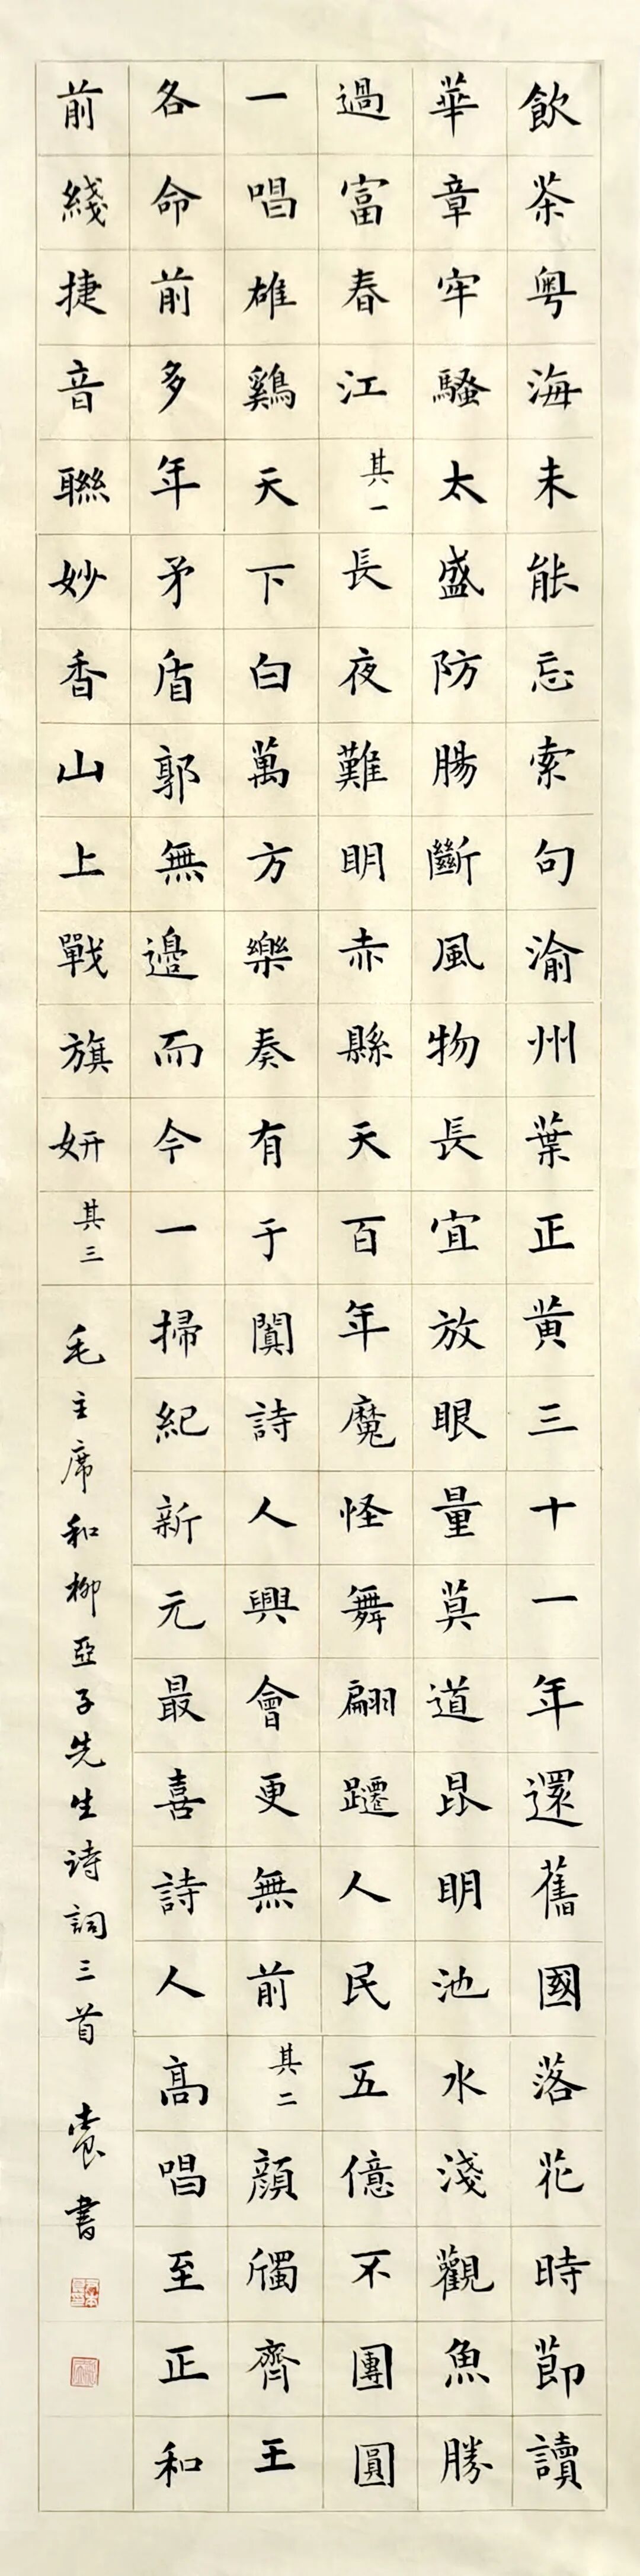 飲茶粵海未能忘索句渝州葉正黃三十一年還舊國落花時節讀
華章牢騷太盛防腸斷風物長宜放眼量莫道昆明池水淺觀魚勝
過富春江其一長夜難明赤縣天百年魔怪舞翩躚人民五億不團圓
一唱雄鷄天下白萬方樂奏有于闐詩人興會更無前其二顏斶齊王
各命前多年矛盾郭無邊而今一掃紀新元最喜詩人高唱至正和
前綫捷音聯妙香山上戰旗妍其三毛主席和柳亞子先生诗詞三首 書